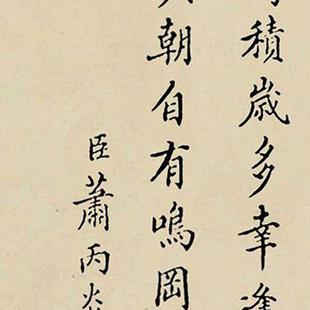 積歲多幸逢
朝自有鳴岡
臣蕭丙炎